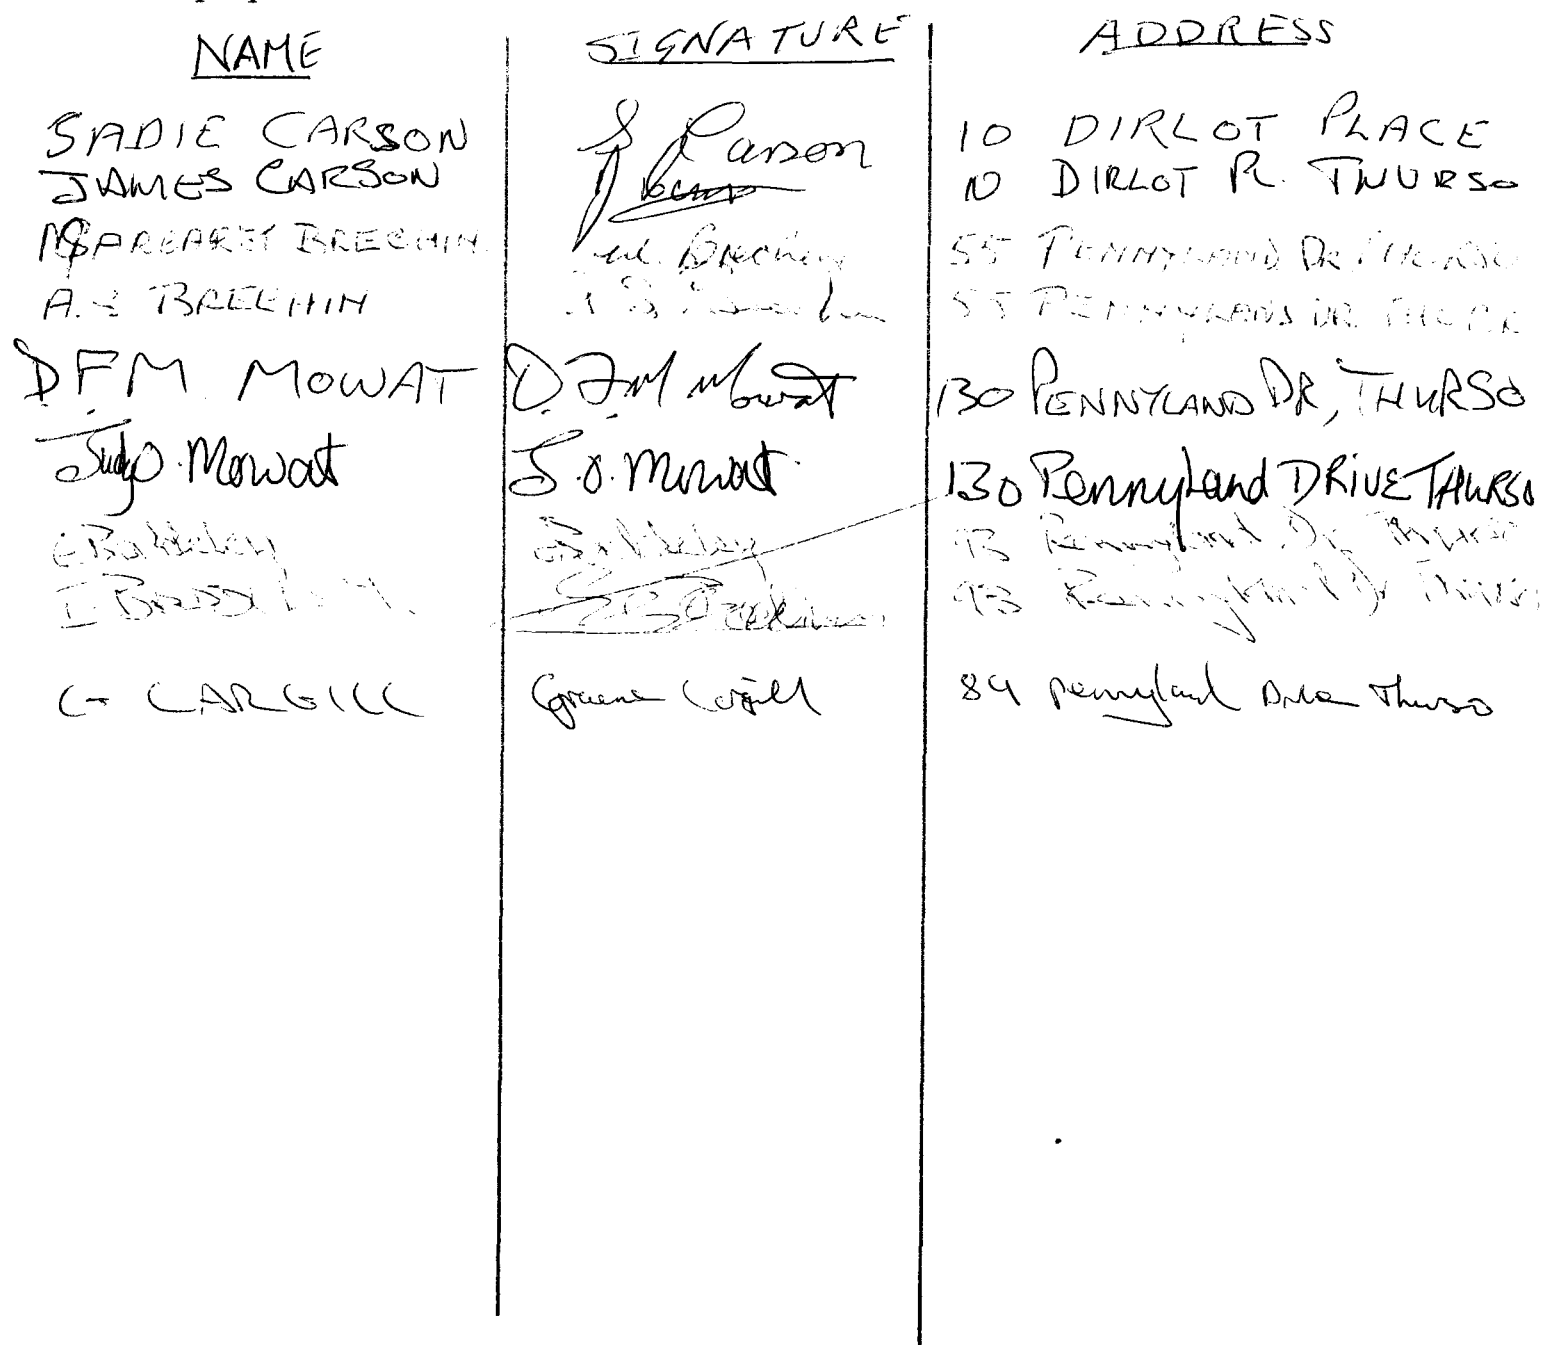 NAME SIGNATURE ADDRESS
SADIE CARSON S Carson 10 DIRLOT PLACE
JAMES CARSON 10 DIRLOT PL. THURSO
MARGARET BRECHIN M. Brechin 55 PENNYLAND DR THURSO
A. BRECHIN 55 PENNYLAND DR. THURSO
D.F.M. MOWAT D.F.M. Mowat 130 PENNYLAND DR, THURSO
Judy O. Mowat J.O. Mowat 130 Pennyland DRIVE THURSO
93 Pennyland Dr. Thurso
I. 93 Pennyland Dr Thurso
G CARGILL Graeme Cargill 89 Pennyland Drive Thurso